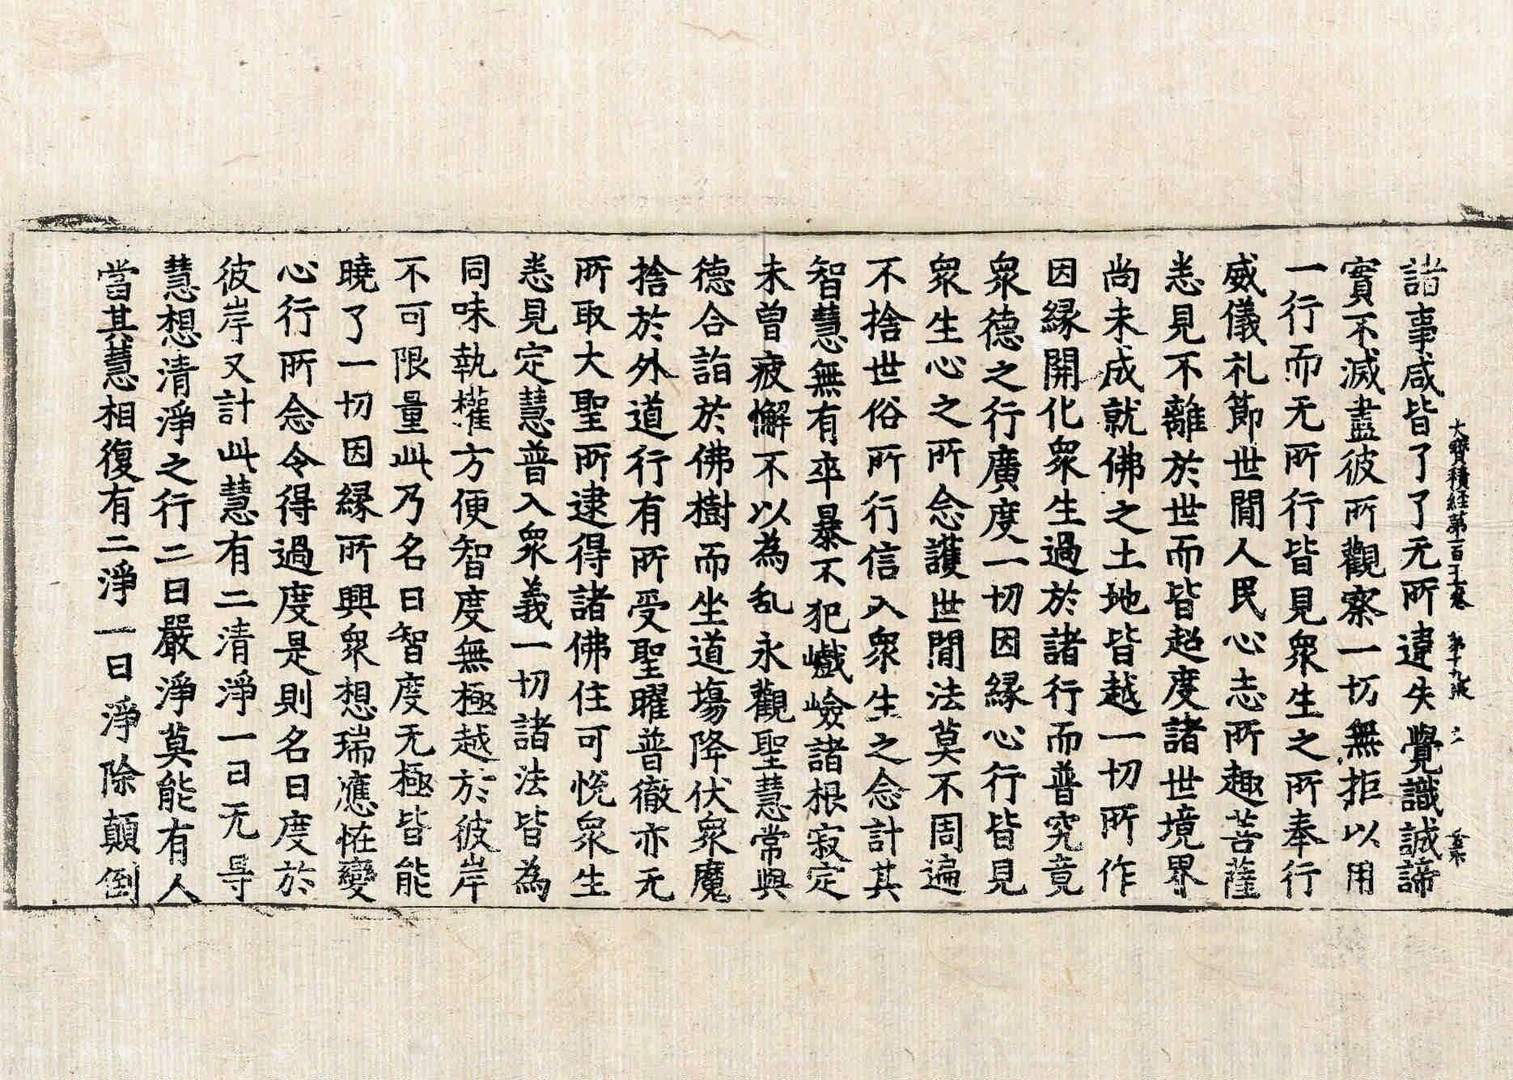 大寶積經第一百十七卷　第十九張
諸事咸皆了了无所違失覺識誠諦
實不滅盡彼所觀察一切無拒以用
一行而无所行皆見衆生之所奉行
威儀礼節世間人民心志所趣菩薩
悉見不離於世而皆超度諸世境界
尚未成就佛之土地皆越一切所作
因緣開化衆生過於諸行而普究竟
衆德之行廣度一切因緣心行皆見
衆生心之所念護世間法莫不周遍
不捨世俗所行信入衆生之念計其
智慧無有卒暴不犯巇嶮諸根寂定
未曾疲懈不以為乱永觀聖慧常與
德合詣於佛樹而坐道場降伏衆魔
捨於外道行有所受聖曜普徹亦无
所取大聖所逮得諸佛住可悅衆生
悉見定慧普入衆義一切諸法皆為
同味執權方便智度無極越於彼岸
不可限量此乃名曰智度无極皆能
曉了一切因緣所興衆想瑞應恠變
心行所念令得過度是則名曰度於
彼岸又計此慧有二清淨一曰无㝵
慧想清淨之行二曰嚴淨莫能有人
當其慧相復有二淨一曰淨除顛倒